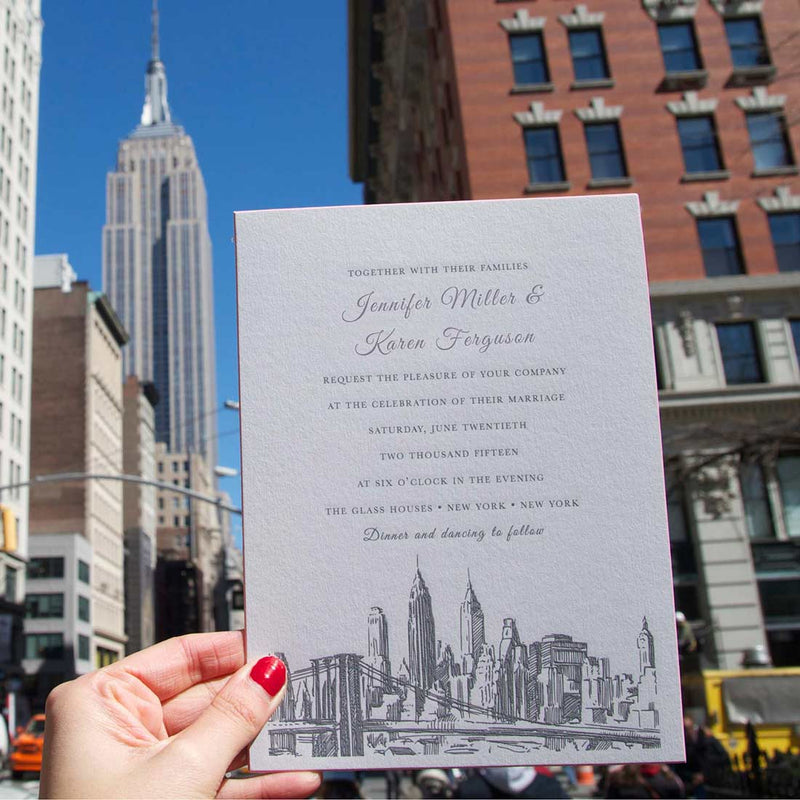 TOGETHER WITH THEIR FAMILIES
Jennifer Miller &
Karen Ferguson
REQUEST THE PLEASURE OF YOUR COMPANY
AT THE CELEBRATION OF THEIR MARRIAGE
SATURDAY, JUNE TWENTIETH
TWO THOUSAND FIFTEEN
AT SIX O'CLOCK IN THE EVENING
THE GLASS HOUSES • NEW YORK • NEW YORK
Dinner and dancing to follow